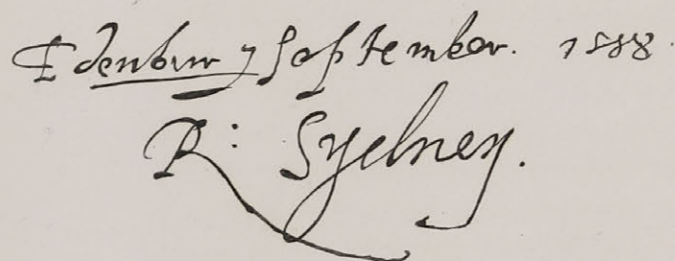 Edenbur 7 September. 1588.
R: Sydney.